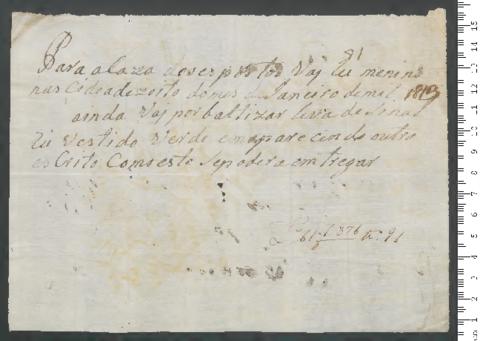 81
Para a Caza dos expostos Vaj hu menino
nascido a dezoito do mes de Janeiro de mil 1813
ainda Vaj por baltizar leva de Sinal
hu vestido verde e en aparecindo outro
esCrito Como este Se podera emtregar